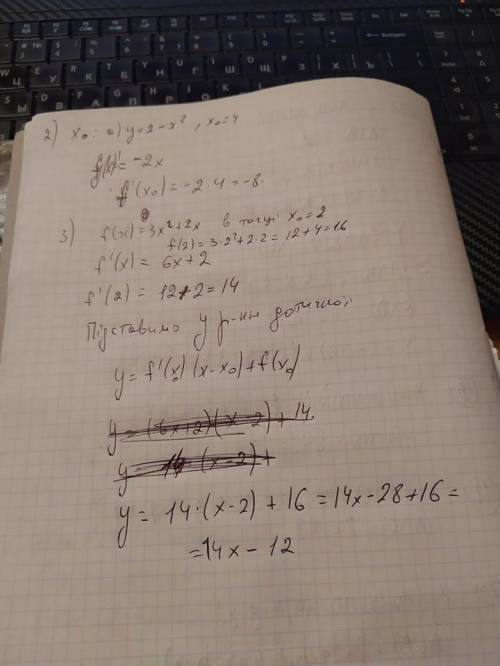 2) x₀: a) y=2-x², x₀=4
y'=-2x
f'(x₀)=-2·4=-8.
3) f(x)=3x²+2x в точці x₀=2
f(2)=3·2²+2·2=12+4=16
f'(x)=6x+2
f'(2)=12+2=14
Підставимо у р-ня дотичної
y=f'(x₀)(x-x₀)+f(x₀)
y=(6x+2)(x-2)+14.
y=14(x-2)+
y=14·(x-2)+16=14x-28+16=
=14x-12